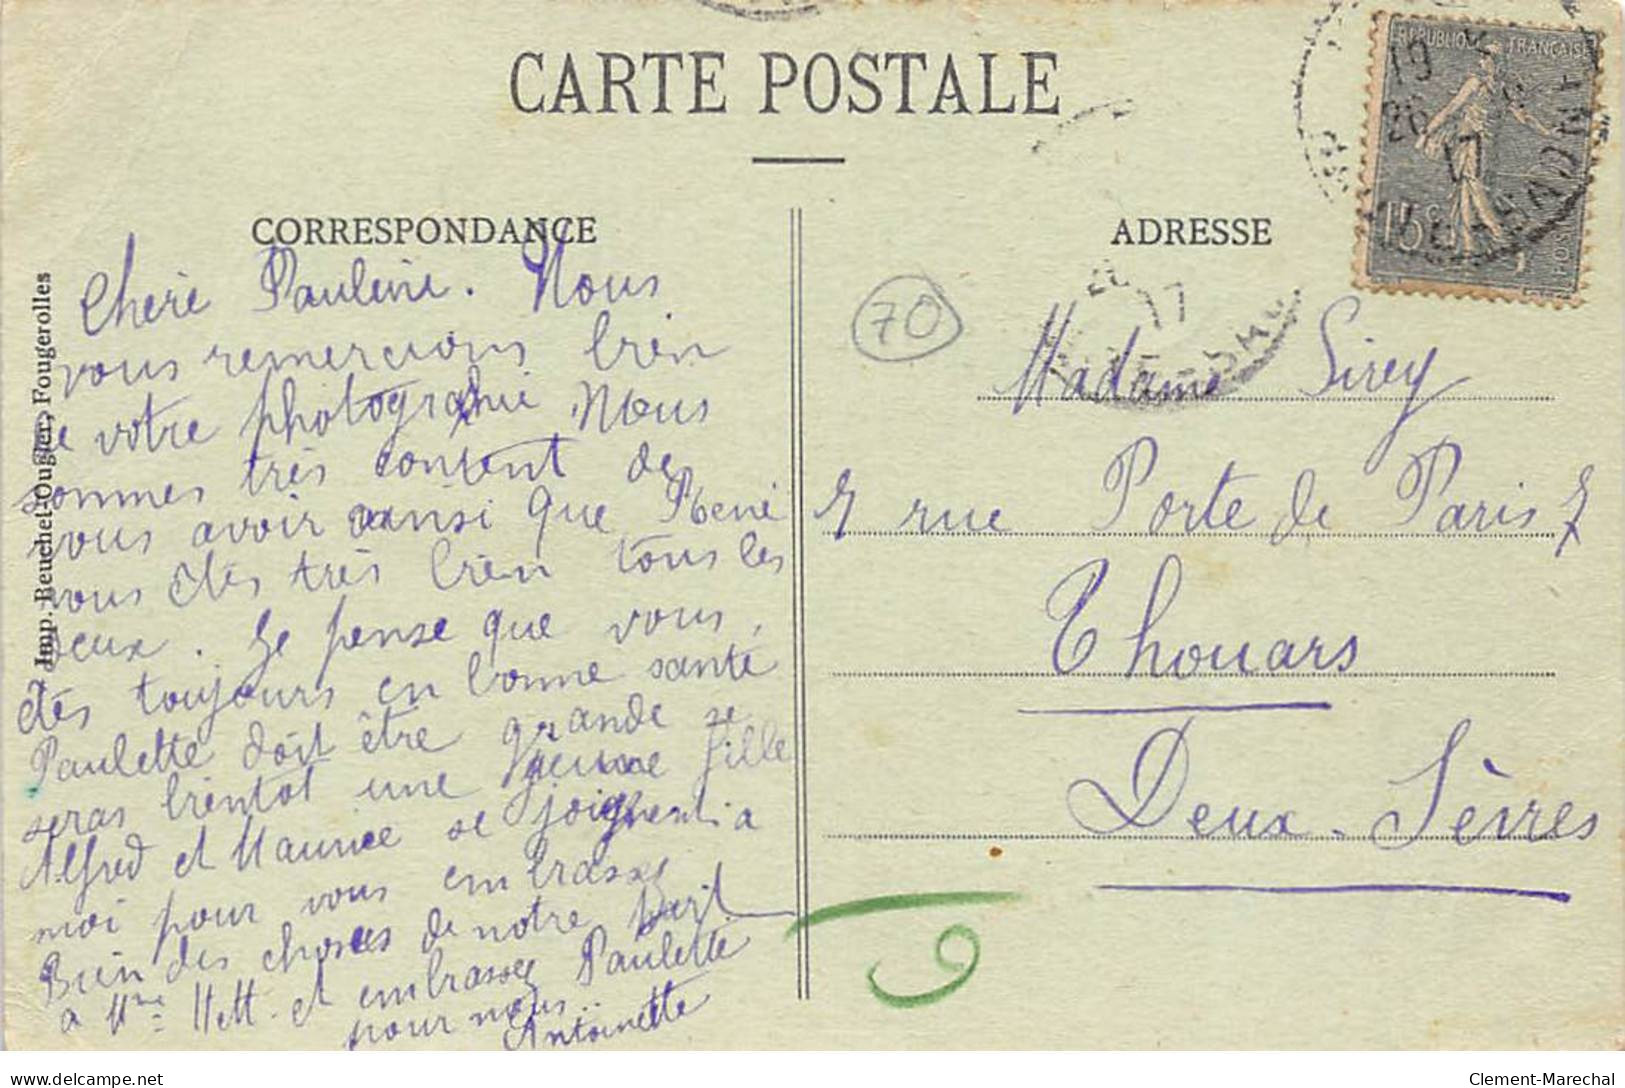 CARTE POSTALE
CORRESPONDANCE
ADRESSE
Imp. Reuchel-Ougier, Fougerolles
REPUBLIQUE FRANÇAISE
15c
19
26
17
17
70
Chère Pauline. Nous
vous remercions bien
de votre photographie Nous
sommes très content de
vous avoir ainsi que René
vous etes très bien tous les
deux. Je pense que vous
etes toujours en bonne santé
Paulette doit être grande se
seras bientot une jeune fille
Alfred et Maurice se joignent a
moi pour vous embrasser
Bien des choses de notre part
a Mme et M. et embrassez Paulette
pour nous..
Antoinette
Madame Sirey
7 rue Porte de Paris 7
Thouars
Deux-Sèvres
delcampe.net
Clement-Marechal